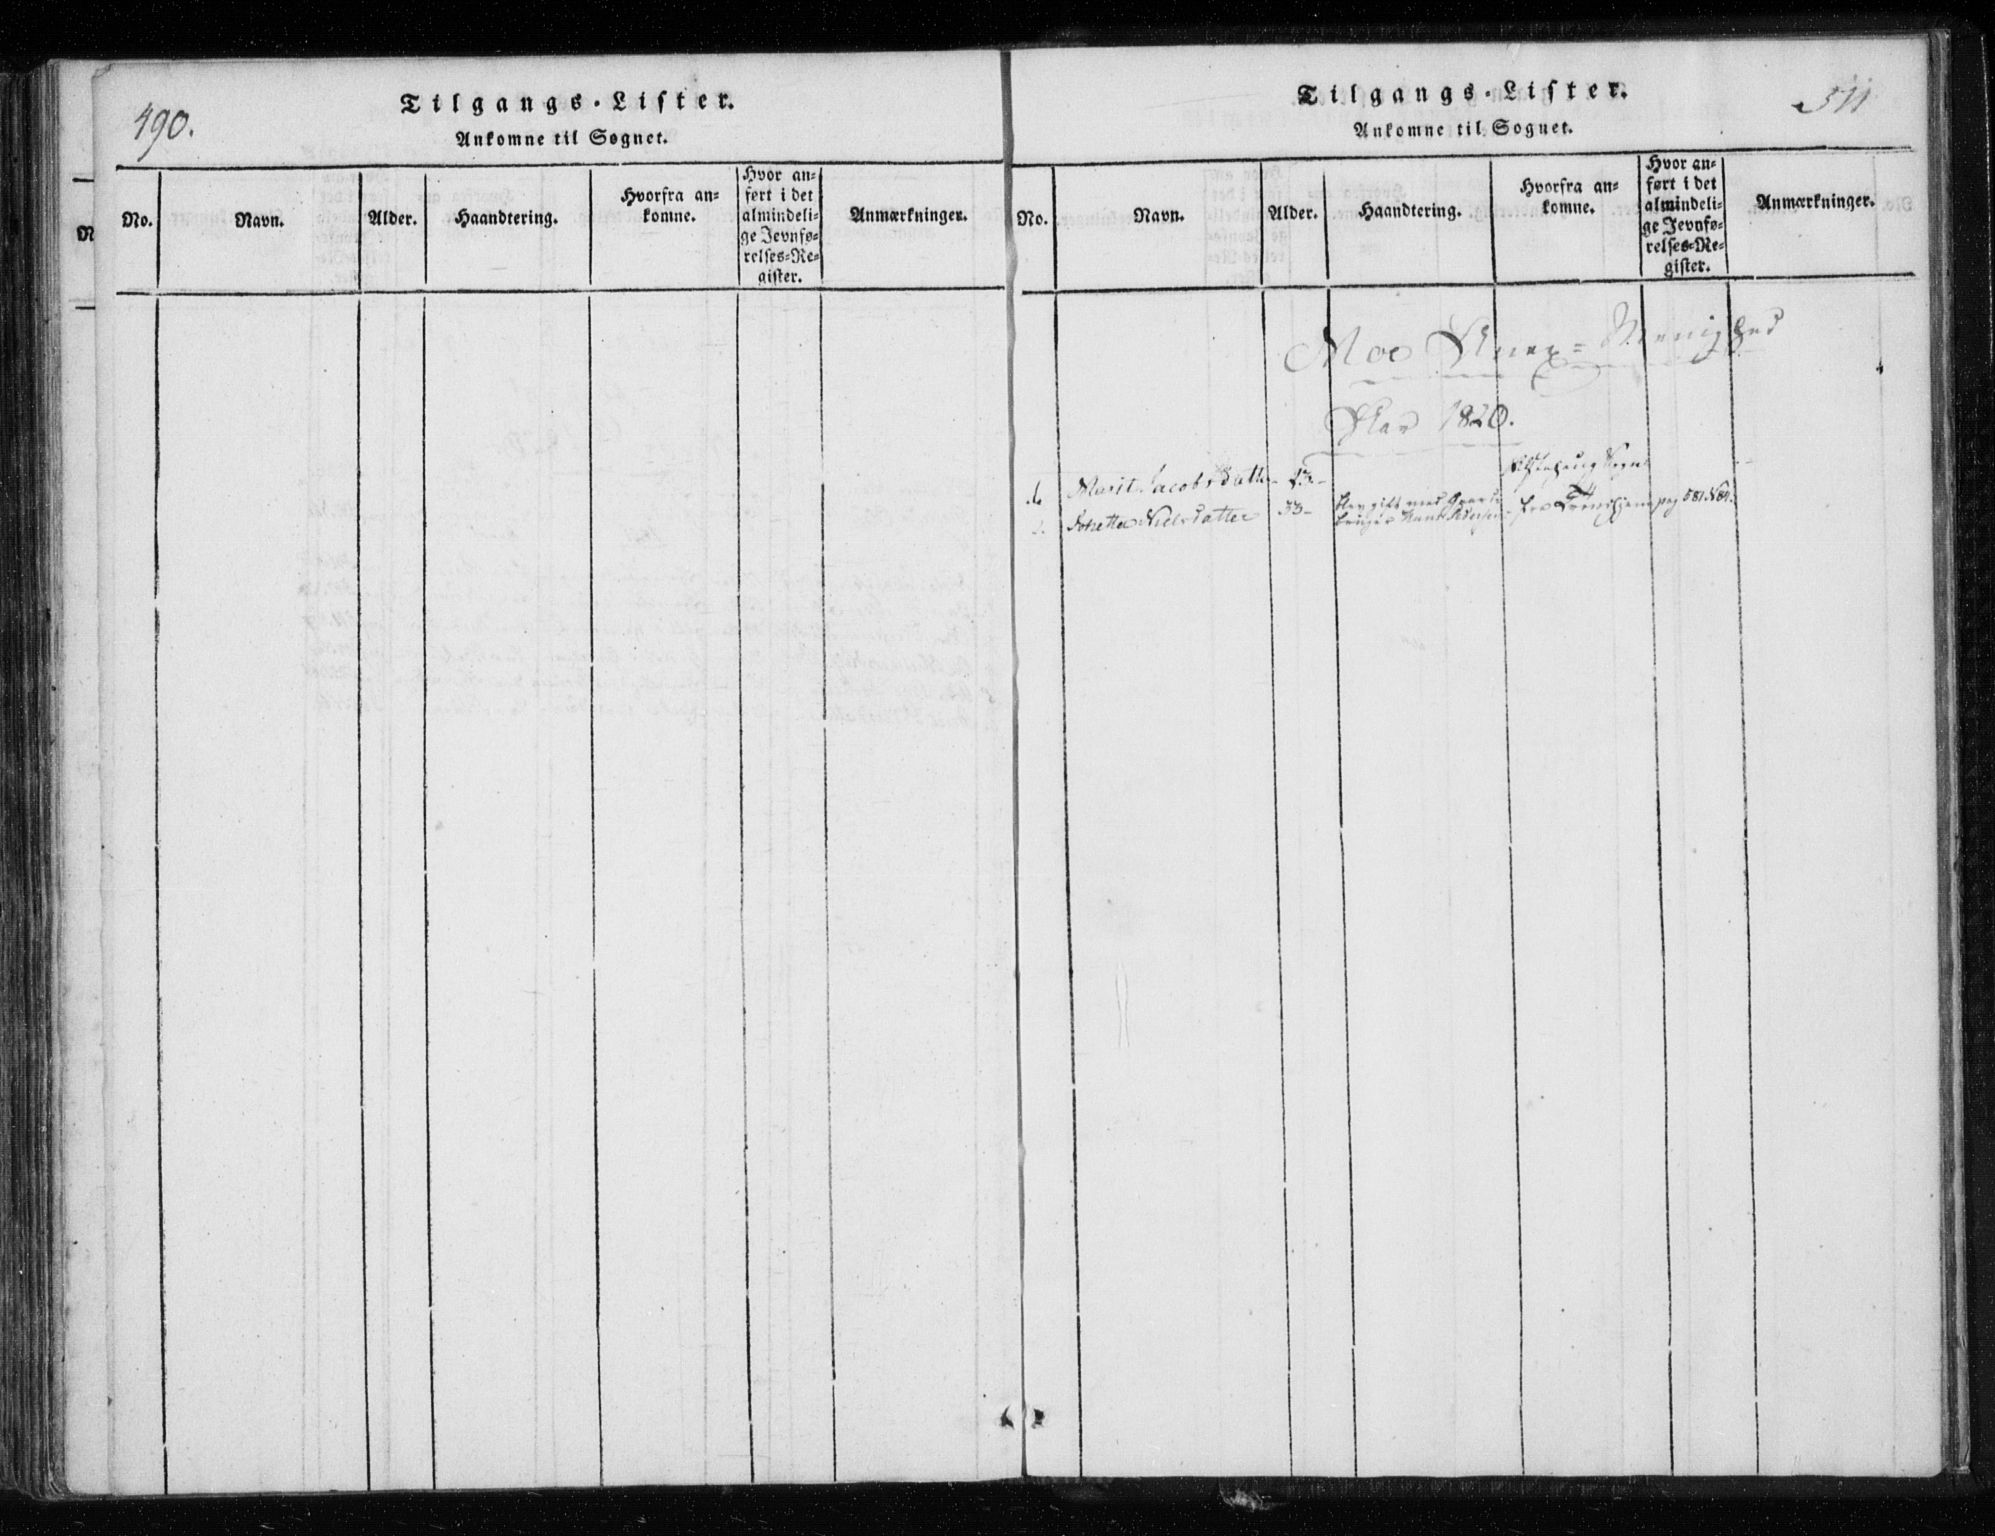 490.
Tilgangs-Lister.
Ankomne til Søgnet.
No.
Navn.
Alder.
Haandtering.
Hvorfra an=
komne.
Hvor an=
ført i det
almindeli=
ge Jevnfø=
relses=Re=
gister.
Anmærkninger.
N
511
Tilgangs-Lister.
Ankomne til Sognet.
No.
Navn.
Alder.
Haandtering.
Hvorfra an=
komne.
Hvor an=
ført i det
almindeli=
ge Jevnfø=
relses=Re=
gister.
Anmærkninger.
Moe Anex=Menighed
Aar 1820.
Marit Jacobsdatter
2. Nielsdatter 33 gift med fra Trondhjem pag 581 N 84.